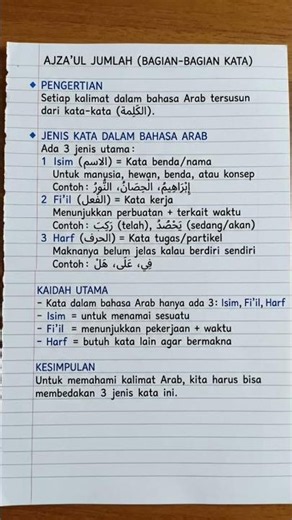 AJZA'UL JUMLAH (BAGIAN-BAGIAN KATA)
◆ PENGERTIAN
Setiap kalimat dalam bahasa Arab tersusun
dari kata-kata (الكَلِمة).
◆ JENIS KATA DALAM BAHASA ARAB
Ada 3 jenis utama:
1 Isim (الاسم) = Kata benda/nama
Untuk manusia, hewan, benda, atau konsep
Contoh: إِبْرَاهِيمُ، الْحِصَانُ، النُّورُ
2 Fi'il (الفعل) = Kata kerja
Menunjukkan perbuatan + terkait waktu
Contoh: رَكِبَ (telah), يَحْصُدُ (sedang/akan)
3 Harf (الحرف) = Kata tugas/partikel
Maknanya belum jelas kalau berdiri sendiri
Contoh: فِي، عَلَى، هَلْ
KAIDAH UTAMA
- Kata dalam bahasa Arab hanya ada 3: Isim, Fi'il, Harf
- Isim = untuk menamai sesuatu
- Fi'il = menunjukkan pekerjaan + waktu
- Harf = butuh kata lain agar bermakna
KESIMPULAN
Untuk memahami kalimat Arab, kita harus bisa
membedakan 3 jenis kata ini.